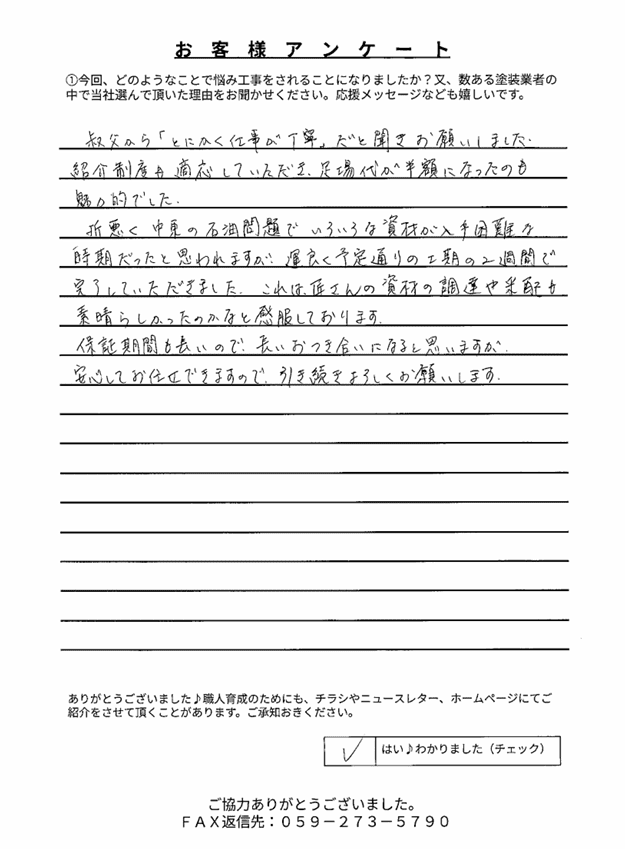 お客様アンケート
①今回、どのようなことで悩み工事をされることになりましたか？又、数ある塗装業者の
中で当社選んで頂いた理由をお聞かせください。応援メッセージなども嬉しいです。
叔父から「とにかく仕事が丁寧」だと聞きお願いしました。
紹介制度も適応していただき、足場代が半額になったのも
魅力的でした。
折悪く中東の石油問題でいろいろな資材が入手困難な
時期だったと思われますが、運良く予定通りの工期の2週間で
完了していただきました。これは、匠さんの資材の調達や采配も
素晴らしかったのかなと感服しております。
保証期間も長いので、長いおつき合いになると思いますが、
安心してお任せできますので、引き続きよろしくお願いします。
ありがとうございました♪職人育成のためにも、チラシやニュースレター、ホームページにてご
紹介をさせて頂くことがあります。ご承知おきください。
✓ はい♪わかりました（チェック）
ご協力ありがとうございました。
ＦＡＸ返信先：０５９－２７３－５７９０